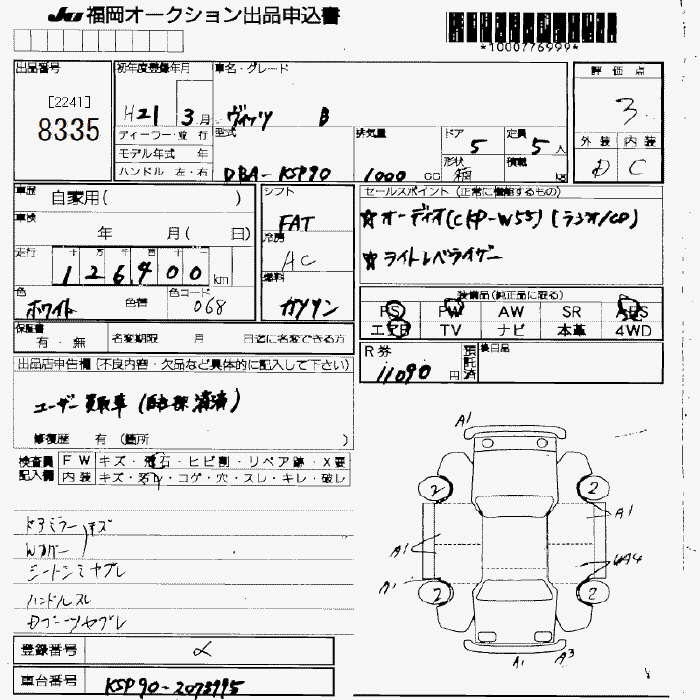 JU 福岡オークション出品申込書
*1000776999*
出品番号
[2241]
8335
初年度登録年月
H21 3月
車名・グレード
ヴィッツ B
評価点
3
外装 内装
D C
ディーラー・並行
モデル年式 年
ハンドル 左・右
型式
DBA-KSP90
排気量
1000 CC
ドア
5
定員
5人
形状
箱
積載
kg
車歴
自家用( )
車検
年 月( 日)
走行
十 万 千 百 十 一
126400 km
色
ホワイト 色替
色コード
068
シフト
FAT
冷房
AC
燃料
ガソリン
セールスポイント (正常に機能するもの)
☆オーディオ(CKP-W55) (ラジオ/CD)
☆ライトレベライザー
装備品(純正品に限る)
PS PW AW SR ABS
エアB TV ナビ 本革 4WD
保証書
有・無
名変期限 月 日迄に名変できる方
R券
11090円
預託済
後日品
出品店申告欄(不良内容・欠品など具体的に記入して下さい)
ユーザー買取車
修復歴 有 (箇所 )
検査員記入欄
FW キズ・飛石・ヒビ割・リペア跡・X要
内装 キズ・汚レ・コゲ・穴・スレ・キレ・破レ
ドアミラー キズ
シートシミヤブレ
ハンドルスレ
Dブーツヤブレ
登録番号
車台番号 KSP90-2073995
A1
2 2
A1
A1
A1
2 2
A1 A3